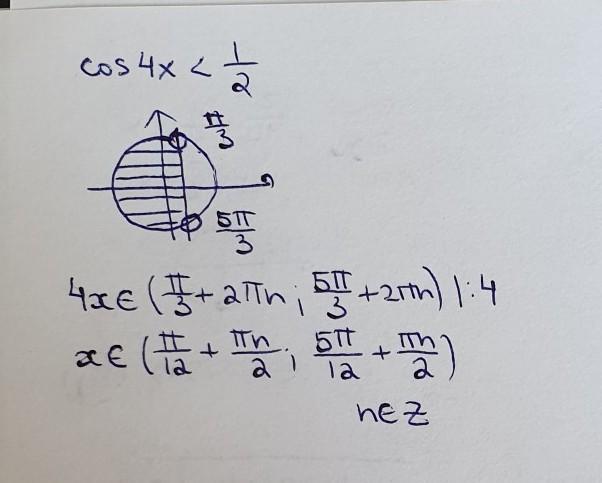 cos 4x < 1/2
π/3
5π/3
4x ∈ (π/3 + 2πn ; 5π/3 + 2πn) |:4
x ∈ (π/12 + πn/2 ; 5π/12 + πn/2)
n ∈ Z